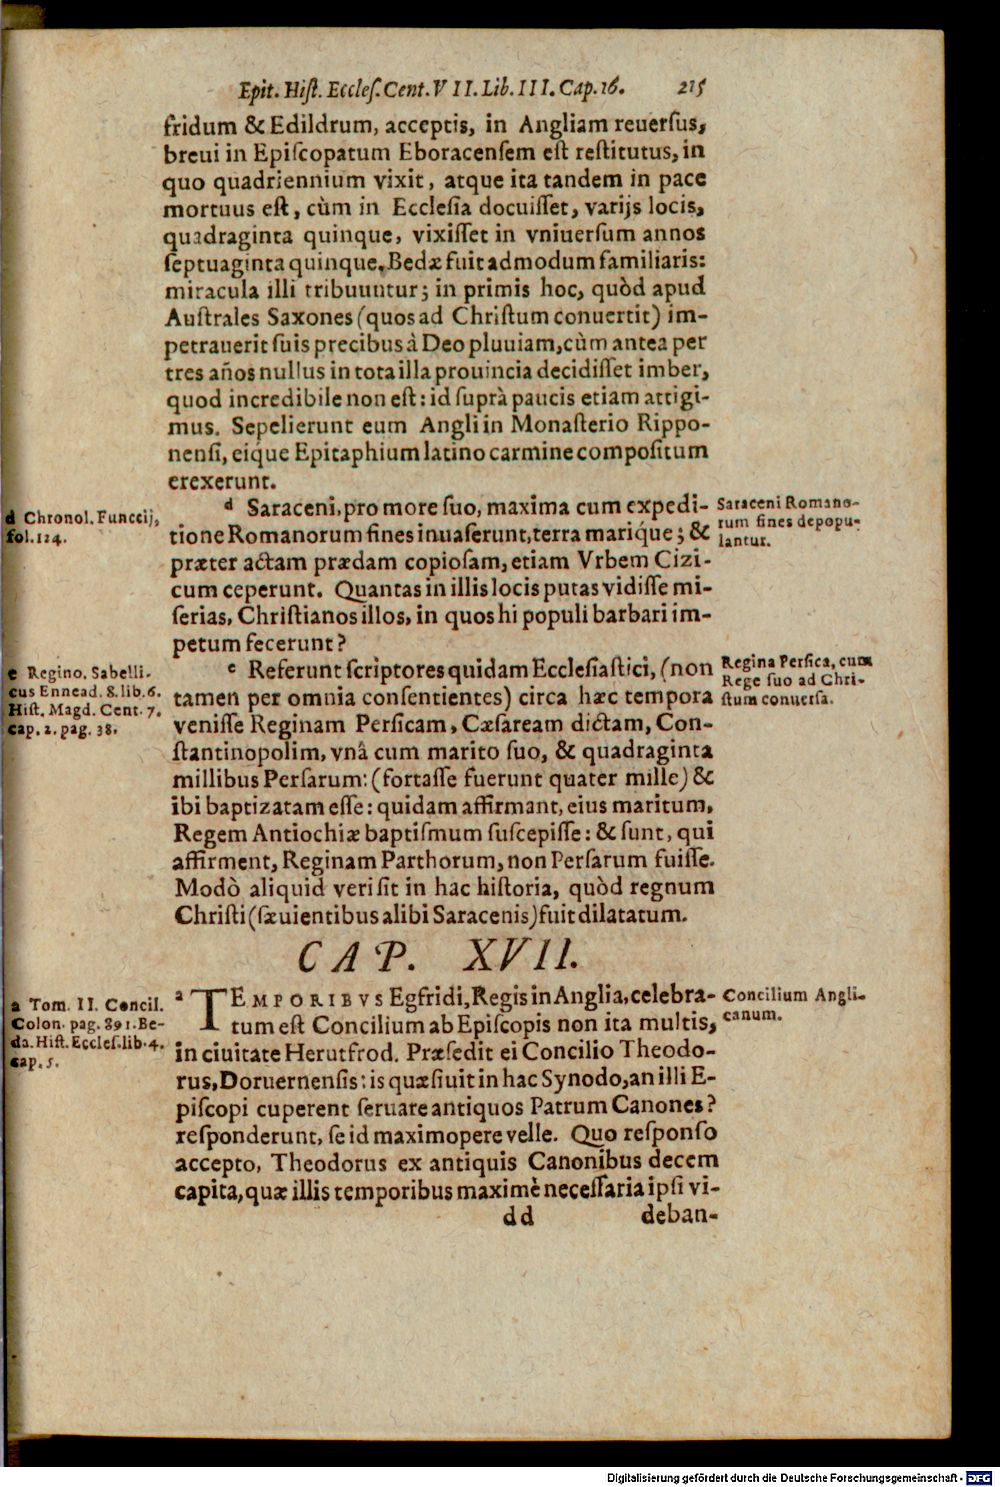 Epit. Hiſt. Eccleſ. Cent. VII. Lib. III. Cap. 16. 215
fridum & Edildrum, acceptis, in Angliam reuerſus,
breui in Epiſcopatum Eboracenſem eſt reſtitutus, in
quo quadriennium vixit, atque ita tandem in pace
mortuus eſt, cùm in Eccleſia docuiſſet, varijs locis,
quadraginta quinque, vixiſſet in vniuerſum annos
ſeptuaginta quinque. Bedæ fuit admodum familiaris:
miracula illi tribuuntur; in primis hoc, quòd apud
Auſtrales Saxones (quos ad Chriſtum conuertit) im-
petrauerit ſuis precibus à Deo pluuiam, cùm antea per
tres años nullus in tota illa prouincia decidiſſet imber,
quod incredibile non eſt: id ſuprà paucis etiam attigi-
mus. Sepelierunt eum Angli in Monaſterio Rippo-
nenſi, eíque Epitaphium latino carmine compoſitum
erexerunt.
d Saraceni, pro more ſuo, maxima cum expedi-
tione Romanorum fines inuaſerunt, terra maríque; &
præter actam prædam copioſam, etiam Vrbem Cizi-
cum ceperunt. Quantas in illis locis putas vidiſſe mi-
ſerias, Chriſtianos illos, in quos hi populi barbari im-
petum fecerunt?
d Chronol. Funccij,
fol. 124.
Saraceni Romano-
rum fines depopu-
lantur.
e Referunt ſcriptores quidam Eccleſiaſtici, (non
tamen per omnia conſentientes) circa hæc tempora
veniſſe Reginam Perſicam, Cæſaream dictam, Con-
ſtantinopolim, vnâ cum marito ſuo, & quadraginta
millibus Perſarum: (fortaſſe fuerunt quater mille) &
ibi baptizatam eſſe: quidam affirmant, eius maritum,
Regem Antiochiæ baptiſmum ſuſcepiſſe: & ſunt, qui
affirment, Reginam Parthorum, non Perſarum fuiſſe.
Modò aliquid veri ſit in hac hiſtoria, quòd regnum
Chriſti (ſæuientibus alibi Saracenis) fuit dilatatum.
e Regino. Sabelli-
cus Ennead. 8. lib. 6.
Hiſt. Magd. Cent. 7.
cap. 2. pag. 38.
Regina Perſica, cum
Rege ſuo ad Chri-
ſtum conuerſa.
CAP. XVII.
a TEMPORIBVS Egfridi, Regis in Anglia, celebra-
tum eſt Concilium ab Epiſcopis non ita multis,
in ciuitate Herutfrod. Præſedit ei Concilio Theodo-
rus, Doruernenſis: is quæſiuit in hac Synodo, an illi E-
piſcopi cuperent ſeruare antiquos Patrum Canones?
reſponderunt, ſe id maximopere velle. Quo reſponſo
accepto, Theodorus ex antiquis Canonibus decem
capita, quæ illis temporibus maximè neceſſaria ipſi vi-
dd deban-
a Tom. II. Concil.
Colon. pag. 891. Be-
da. Hiſt. Eccleſ. lib. 4.
cap. 5.
Concilium Angli-
canum.
Digitalisierung gefördert durch die Deutsche Forschungsgemeinschaft - DFG